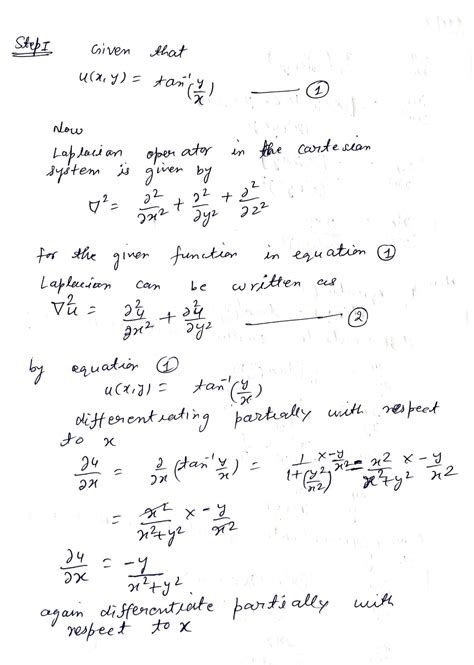 Step I Given that
u(x,y) = tan⁻¹(y/x) —— ①
Now
Laplacian operator in the cartesian
system is given by
∇² = ∂²/∂x² + ∂²/∂y² + ∂²/∂z²
for the given function in equation ①
Laplacian can be written as
∇²u = ∂²u/∂x² + ∂²u/∂y² —— ②
by equation ①
u(x,y) = tan⁻¹(y/x)
differentiating partially with respect
to x
∂u/∂x = ∂/∂x (tan⁻¹ y/x) = 1/(1+(y²/x²)) × -y/x² = x²/(x²+y²) × -y/x²
= x²/(x²+y²) × -y/x²
∂u/∂x = -y/(x²+y²)
again differentiate partially with
respect to x